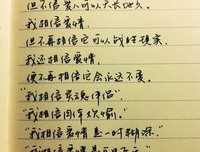 但不信爱人可以天长地久。
我相信爱情,
但不再相信它可以战胜现实。
我还相信爱情,
便不再相信它会永远不变。
"我相信灵魂伴侣"
"我相信同床
"我相信爱情是一时糊涂"
"我相信爱情